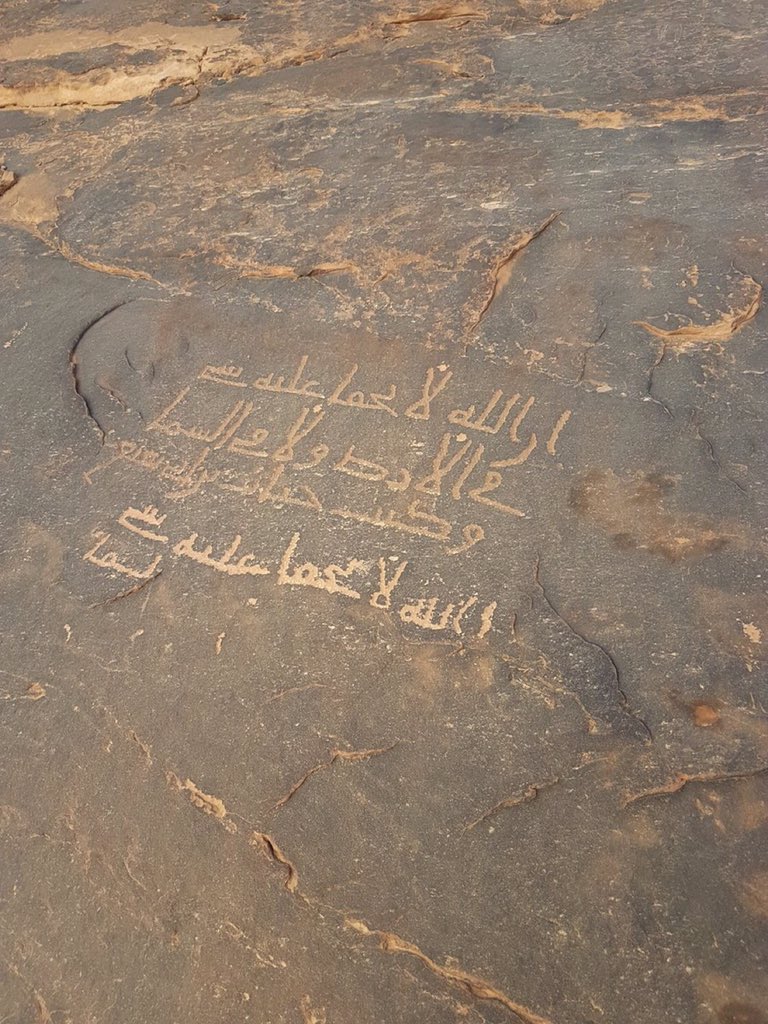 ان الله لا يخفا عليه شي
في الارض ولا في السما
وكتب
ان الله لا يخفا عليه شي